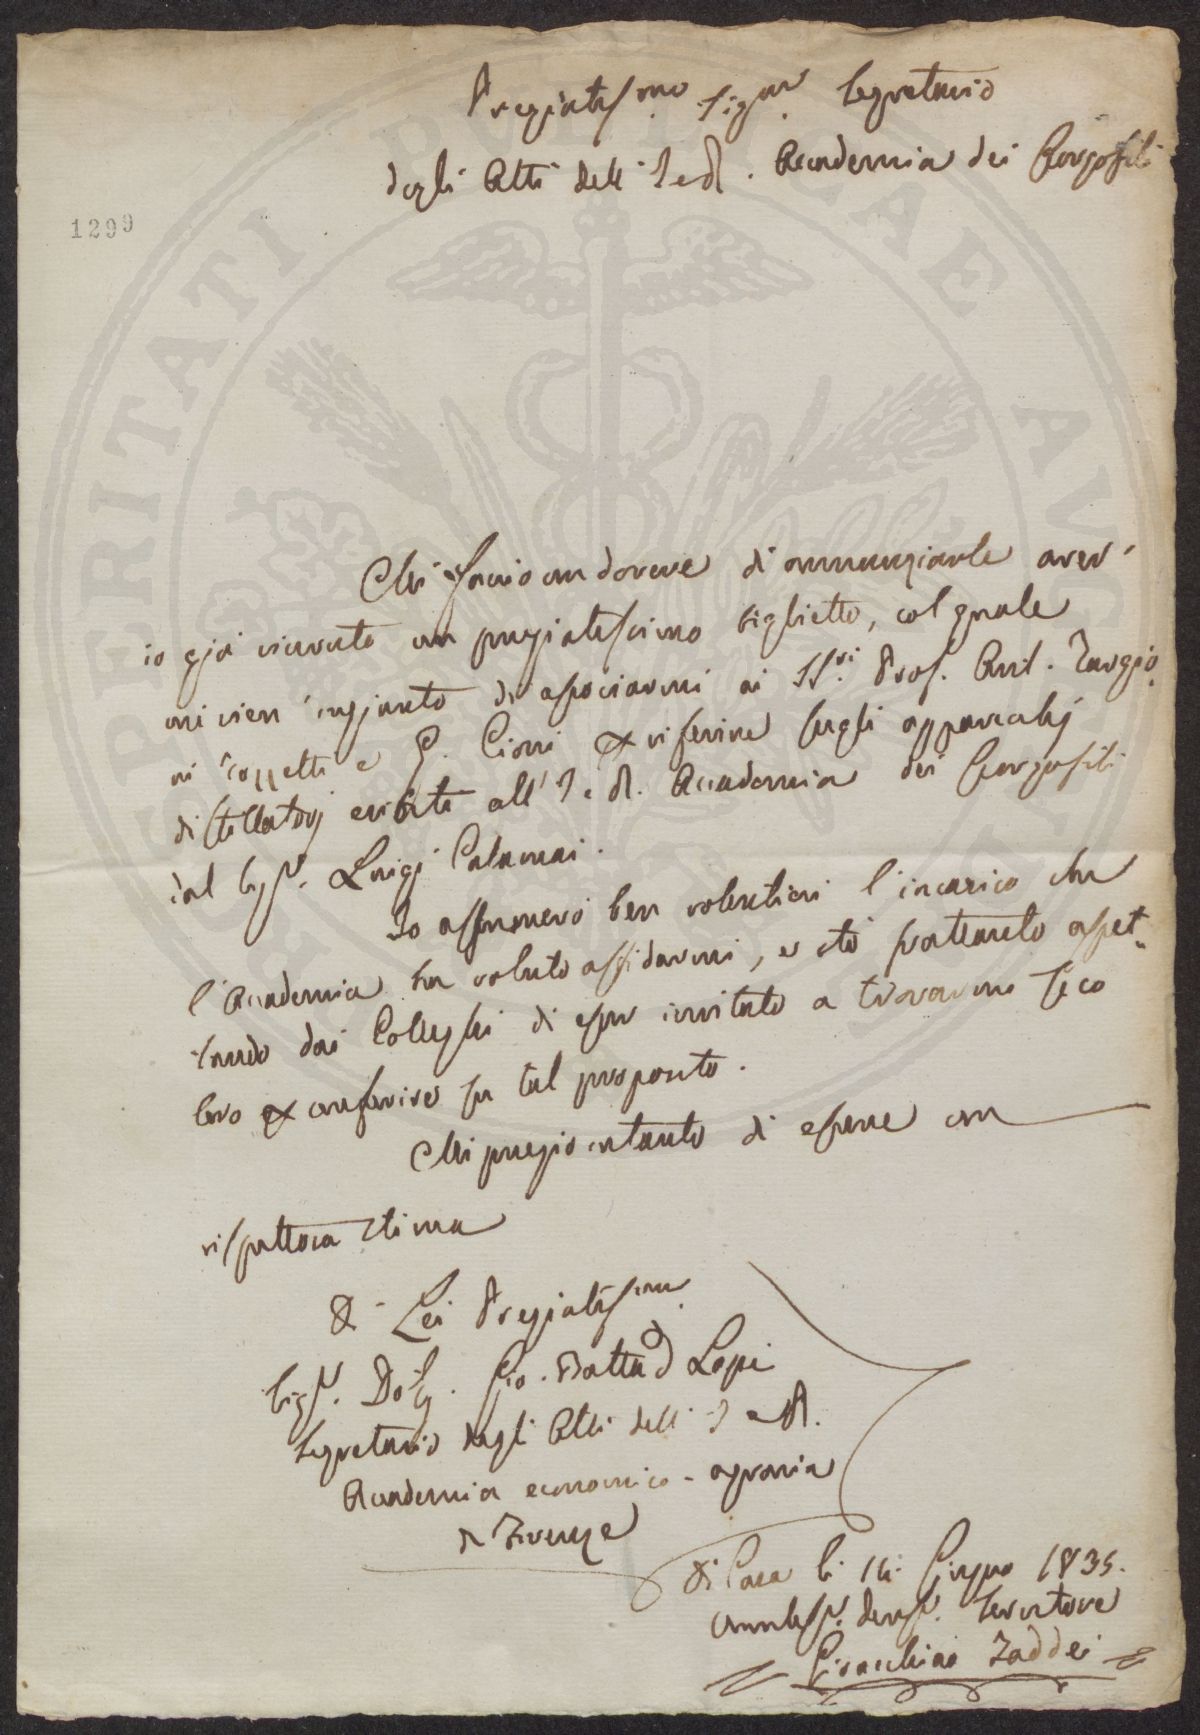 Pregiatis.mo Sig.re Segretario
degli Atti dell' I e R. Accademia dei Georgofili
1299
Mi faccio un dovere di annunziarle aver
io già ricevuto un pregiatissimo biglietto, col quale
mi vien ingiunto di associarmi ai SS.ri Prof. Ant. Targio
ni Tozzetti e G. Cioni e riferire sugli apparechj
distillatorj esibiti all' I. e R. Accademia dei Georgofili
dal Sig.r Luigi Calamai.
Io assumerò ben volentieri l'incarico che
l'Accademia ha voluto affidarmi, e stò frattanto aspet-
tando dai Colleghi di esser invitato a trovarmi seco
loro e conferire su tal proposito.
Mi pregio intanto di essere con
rispettosa stima
Di Lei Pregiatis.mo
Sig.r Dott. Gio. Batta Lapi
Segretario degli Atti dell' I e R.
Accademia economico-agraria
di Firenze
Di Casa li Giugno 1835.
Umiliss.o Dev.o Servitore
Gioacchino Taddei
PROSPERITATI PUBLICAE AUGENDAE